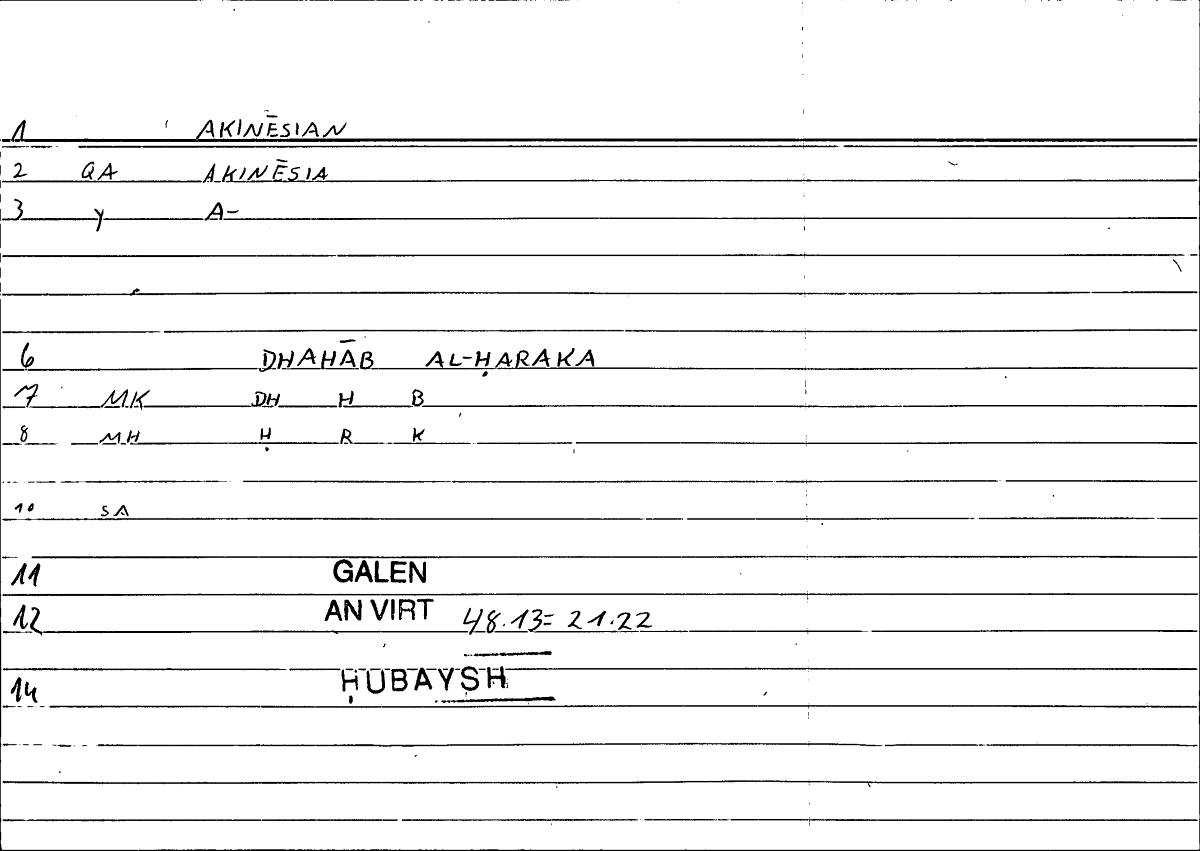 1 AKINĒSIAN
2 QA AKINĒSIA
3 Y A-
6 DHAHĀB AL-ḤARAKA
7 MK DH H B
8 MH Ḥ R K
10 SA
11 GALEN
12 AN VIRT 48.13= 21.22
14 ḤUBAYSH